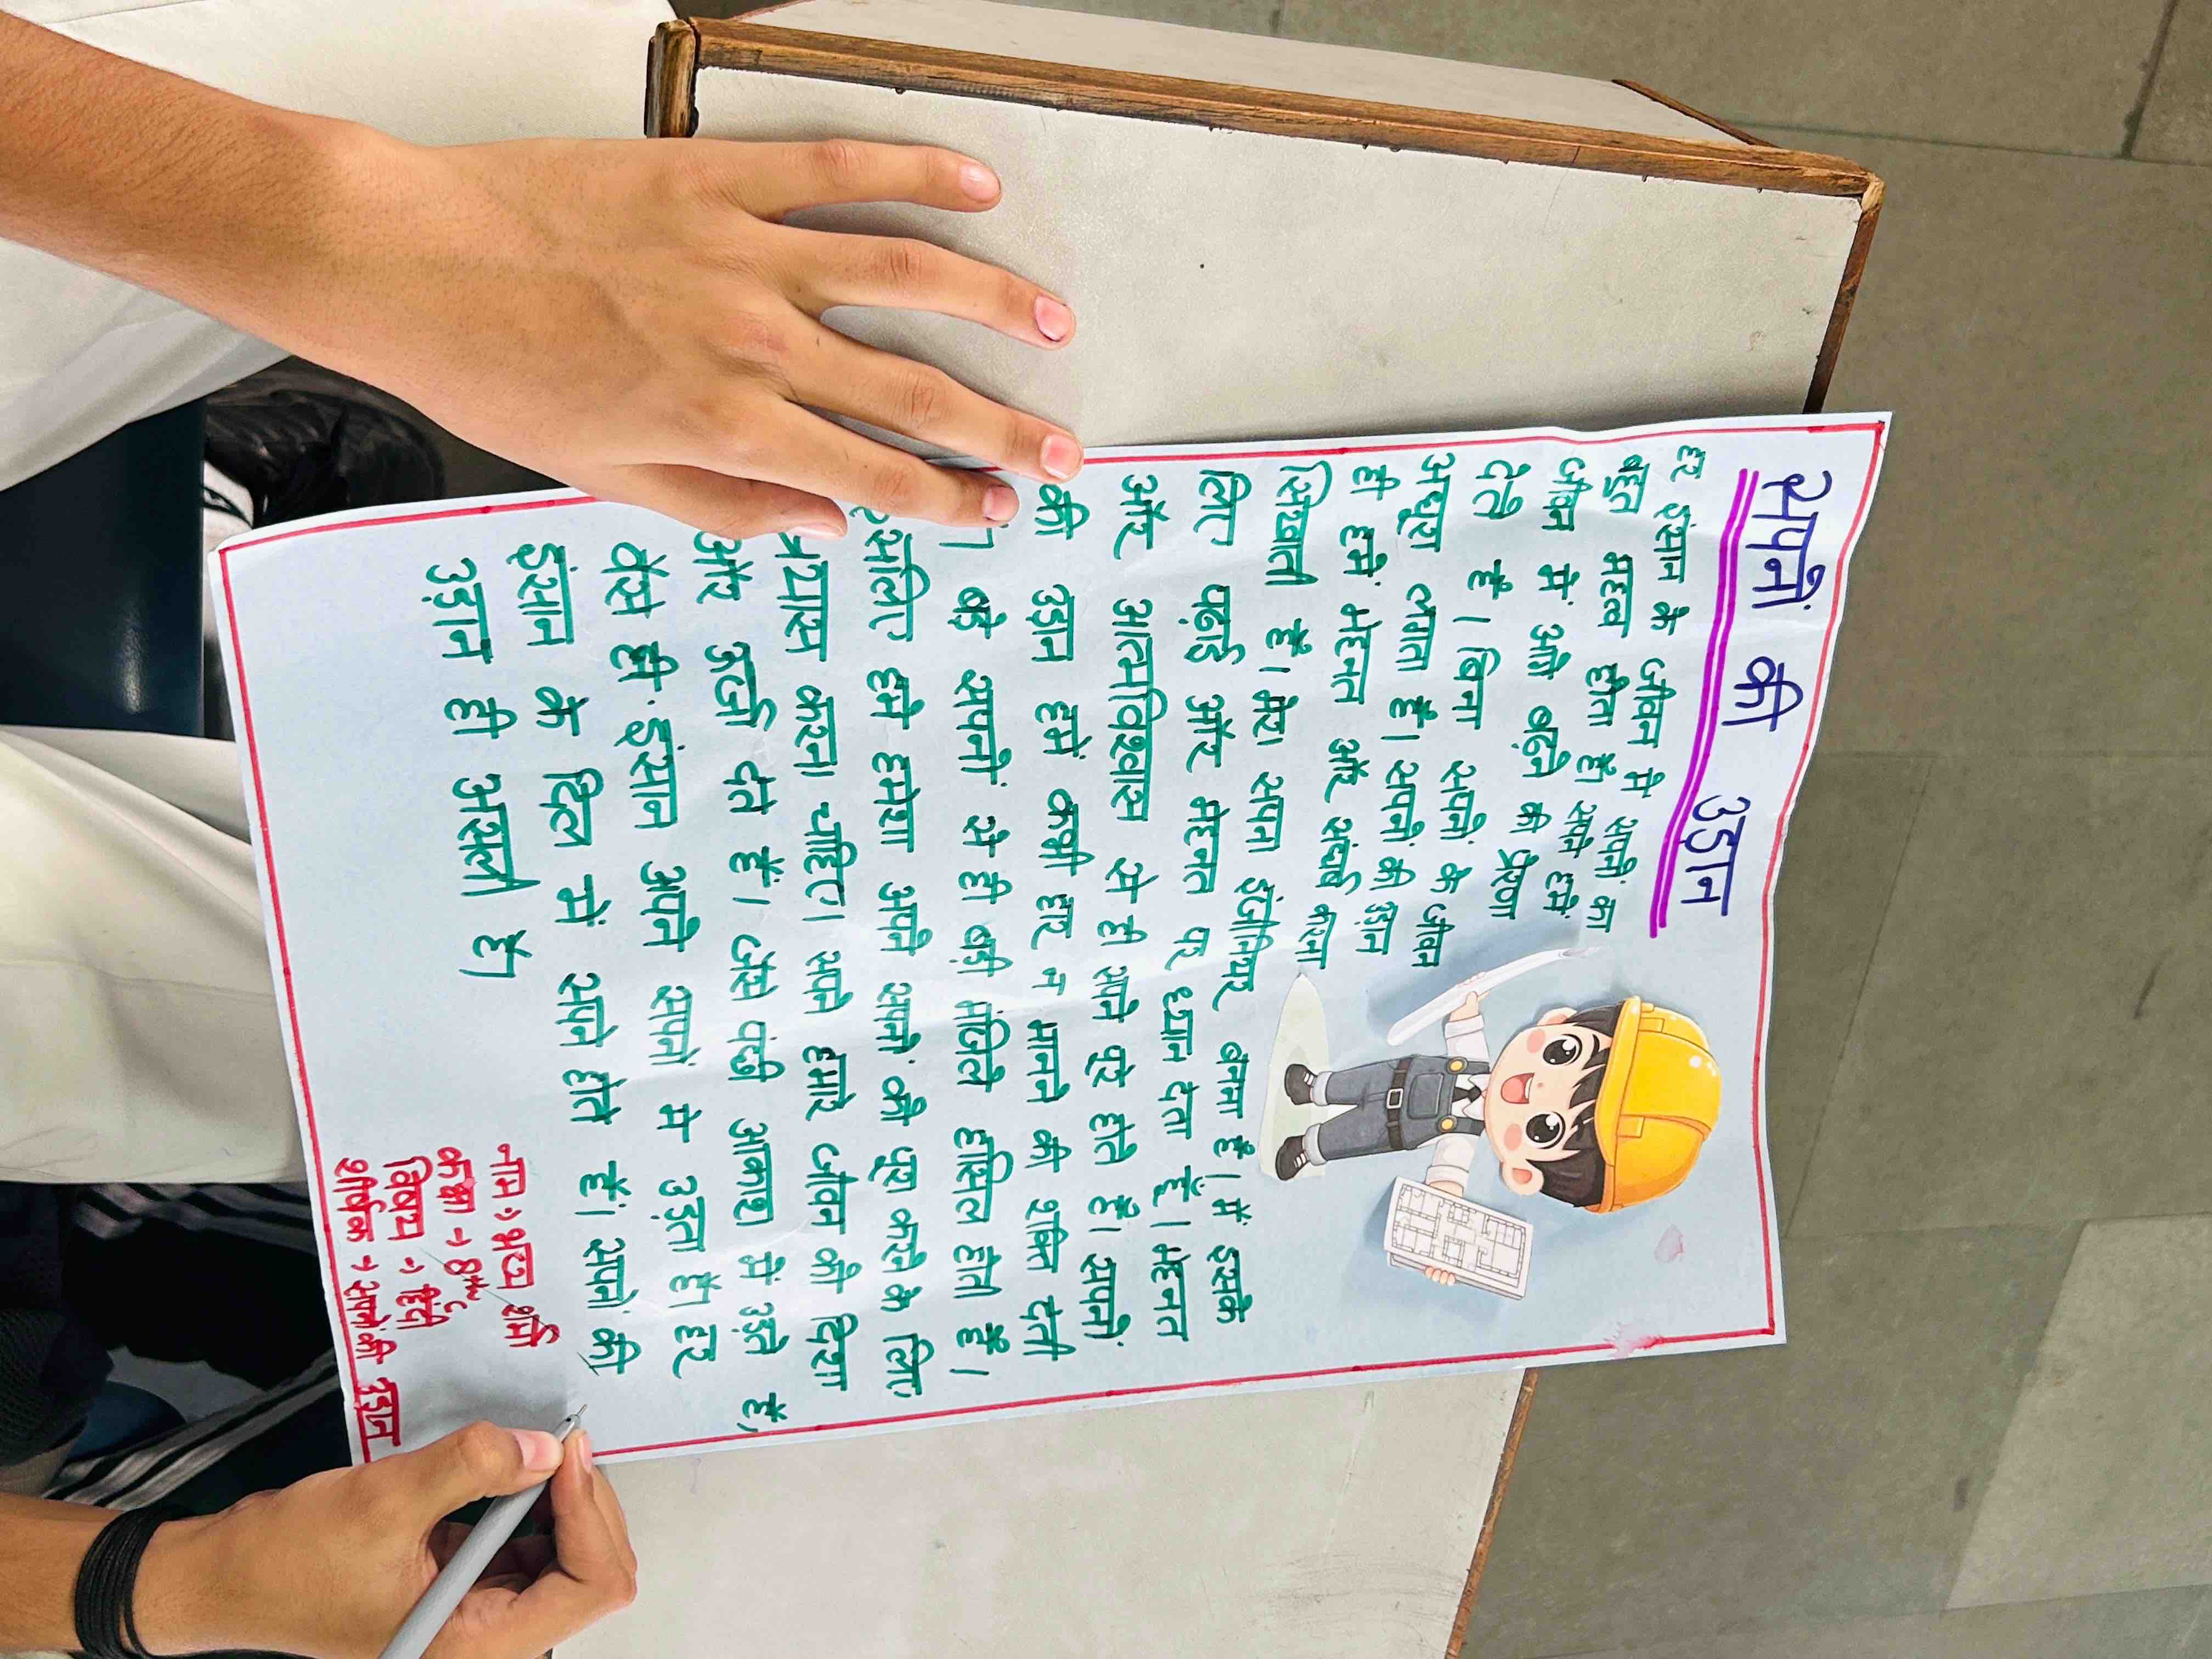 सपनों की उड़ान
हर इंसान के जीवन में सपनों का
बहुत महत्व होता है। सपने हमें
जीवन में आगे बढ़ने की प्रेरणा
देते हैं। बिना सपनों के जीवन
अधूरा लगता है। सपनों की उड़ान
ही हमें मेहनत और संघर्ष करना
सिखाती है। मेरा सपना इंजीनियर बनना है। मैं इसके
लिए पढ़ाई और मेहनत पर ध्यान देता हूँ। मेहनत
और आत्मविश्वास से ही सपने पूरे होते हैं। सपनों
की उड़ान हमें कभी हार न मानने की शक्ति देती
बड़े सपनों से ही बड़ी मंज़िले हासिल होती हैं।
इसलिए हमें हमेशा अपने सपनों को पूरा करने के लिए
प्रयास करना चाहिए। सपने हमारे जीवन को दिशा
और ऊर्जा देते हैं। जैसे पंछी आकाश में उड़ते हैं,
वैसे ही इंसान अपने सपनों में उड़ता है। हर
इंसान के दिल में सपने होते हैं। सपनों की
उड़ान ही असली है।
नाम → भव्य शर्मा
कक्षा → 8ᵗʰ C
विषय → हिंदी
शीर्षक → सपनों की उड़ान